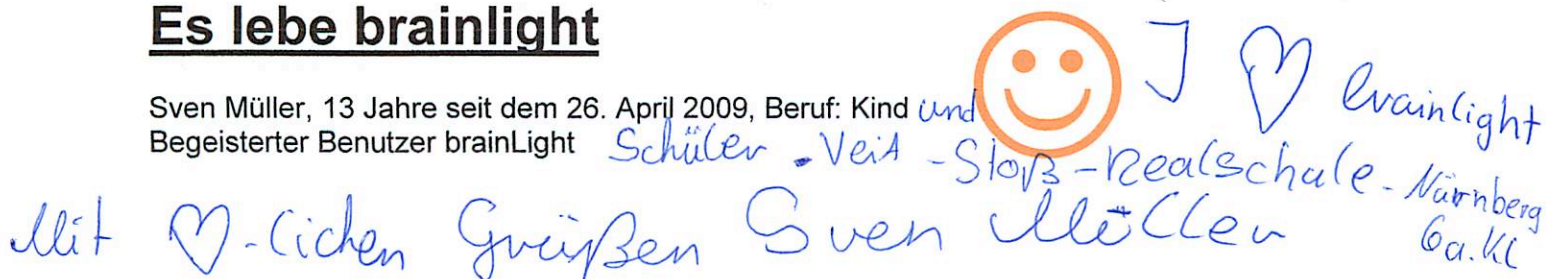 Es lebe brainlight
I ♡ brainlight
Sven Müller, 13 Jahre seit dem 26. April 2009, Beruf: Kind und
Begeisterter Benutzer brainLight Schüler - Veit - Stoß - Realschule - Nürnberg
6a. Kl
Mit ♡-lichen Grüßen Sven Müller